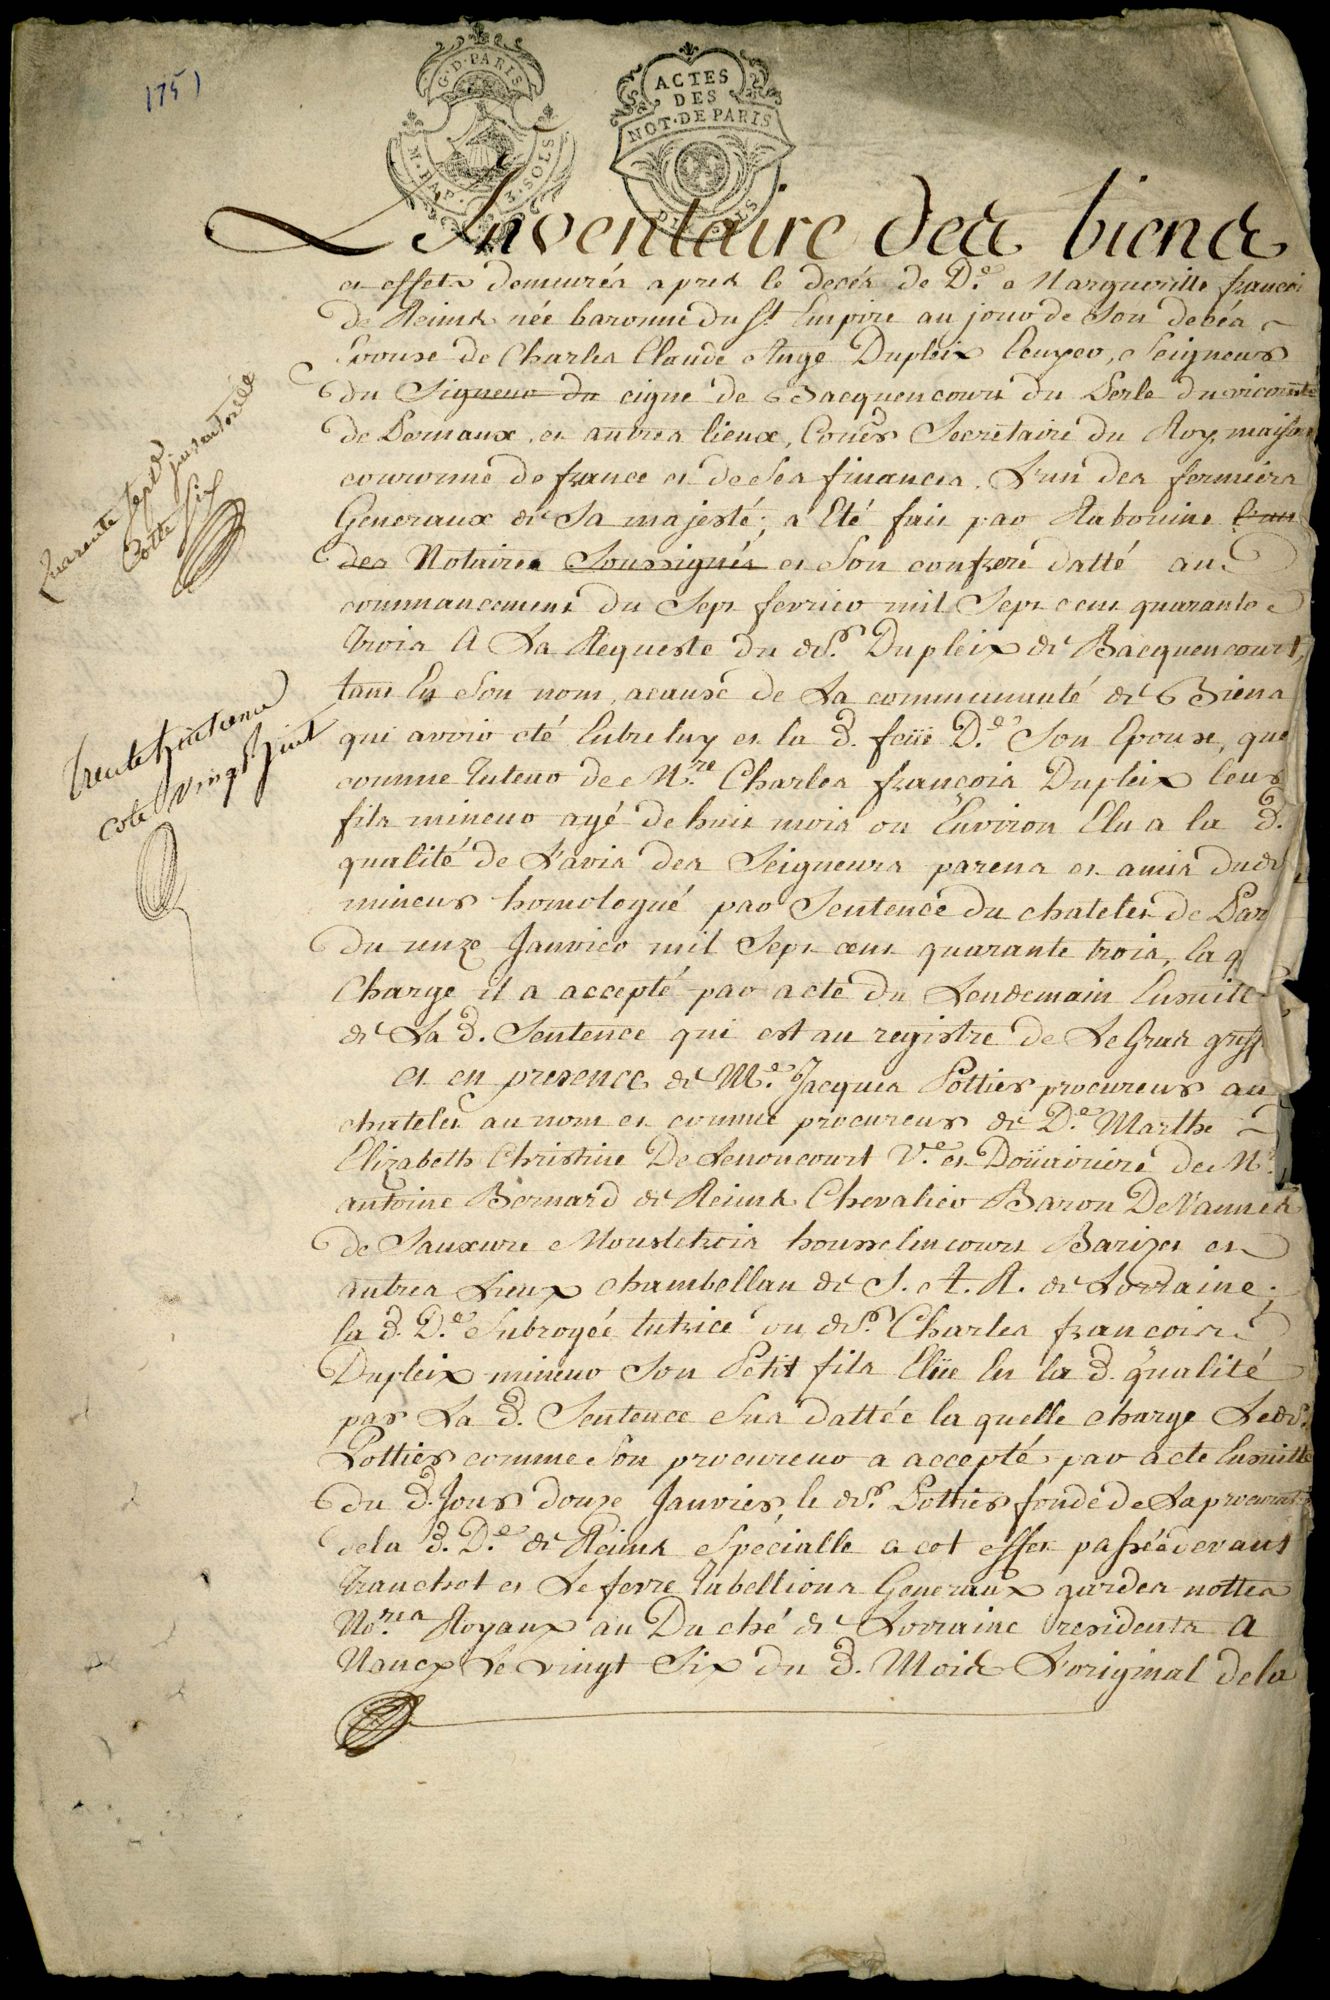 1751
G.D.PARIS
M.PAP. 3.SOLS
ACTES
DES
NOT.DE PARIS
SOLS
L'Inventaire des biens
et effets demeurés apres le decés de De. Margueritte françoi
de Reims née baronne du St. Empire au jour de son decés
Epouse de Charles Claude Ange Dupleix Ecuyer, Seigneur
du Signeur du cigne de Bacquencourt du Perle du vicomté
de Pernaux, et autres lieux, Coner. Secretaire du Roy, maison
couronne de france et de Ses finances, L'un des fermiers
Generaux de Sa majesté; a Eté fait par Rabouine l'un
des Notaires Soussignés et Son confrere datté au
commancement du Sept fevrier mil Sept cent quarante
trois A La Requeste du dSr. Dupleix de Bacquencourt,
tant En Son nom, acause de La communauté de Biens
qui avoit eté Entre luy et la d. feüe De. Son Epouse, que
comme Tuteur de Mre. Charles françois Dupleix leur
fils mineur agé de huit mois ou Environ Elu a la d.
qualité de L'avis des Seigneurs parens et amis dud
mineur homologué par Sentence du chatelet de Par
du unze Janvier mil Sept cent quarante trois, la q
Charge il a accepté par acte du Lendemain Ensuite
de La d. Sentence qui est au registre de LeGras greff
et en presence de Me. Jacques Pottier procureur au
chatelet au nom et comme procureur de De. Marthe
Elizabeth Christine De Lenoncourt Ve. et Doüairiere de Mr.
antoine Bernard de Reims Chevalier Baron De Vannes
de Sauxure Moustetrois housselincourt Barizey et
autres Lieux chambellan de S. A. R. de Lorraine;
la d. De. Subrogée tutrice ou dSr. Charles francois
Dupleix mineur Son Petit fils Elüe En la d. qualité
par La d. Sentence Sus dattée la quelle charge LedSr.
Pottier comme Son procureur a accepté par acte Ensuitte
du d. Jour douze Janvier, le dSr. Pottier fondé de La procurat
de la d. De. de Reims Spécialle a cet effet passée devant
Tranchot et Lefevre Tabellions Generaux gardes nottes
Nores. Royaux au Duché de Lorraine residents a
Nancy Le vingt Six du d. Mois L'original de la
Quarante Sept
Cotte Six
trente huitieme
cote vingt huit